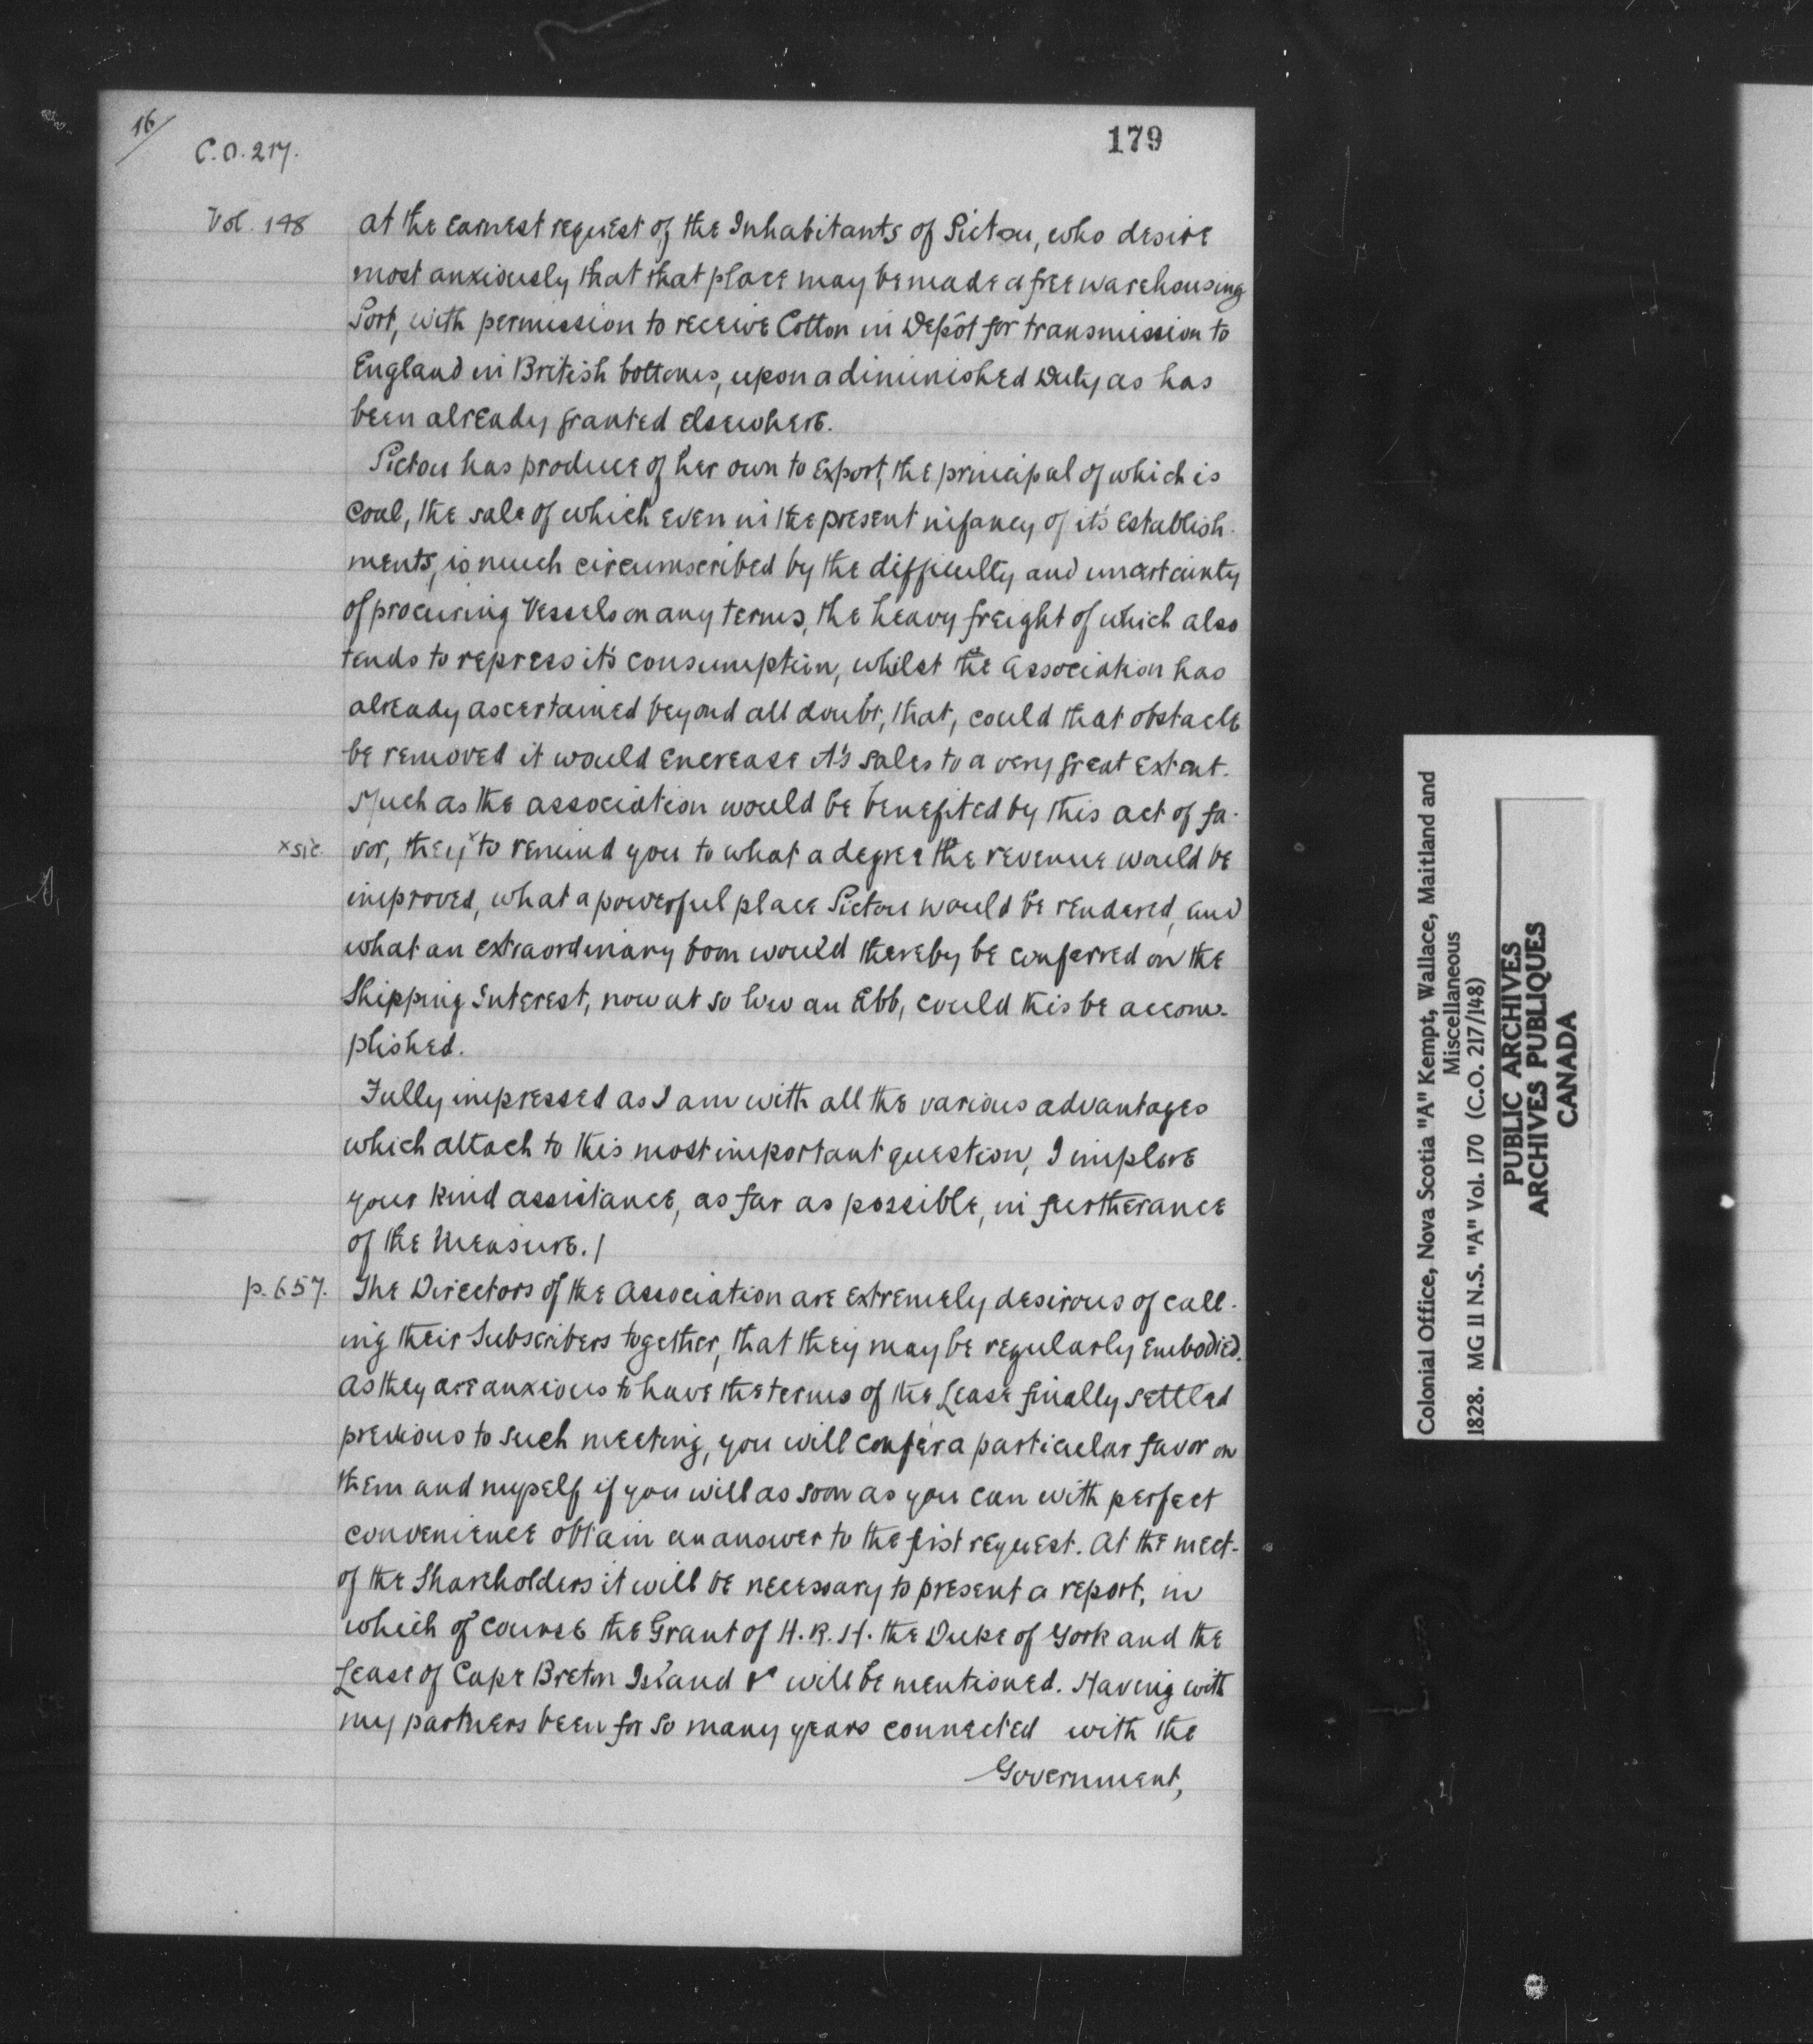 16/
C.O. 217.
179
Vol. 148
at the earnest request of the Inhabitants of Pictou, who desire
most anxiously that that place may be made a free warehousing
Port, with permission to receive Cotton in Depôt for transmission to
England in British bottoms, upon a diminished Duty as has
been already granted elsewhere.
Pictou has produce of her own to export, the principal of which is
Coal, the sale of which even in the present infancy of it's establish-
ments, is much circumscribed by the difficulty and uncertainty
of procuring Vessels on any terms, the heavy freight of which also
tends to repress it's consumption, whilst the Association has
already ascertained beyond all doubt, that, could that obstacle
be removed it would encrease it's sales to a very great extent.
Much as the association would be benefited by this act of fa-
x sic.
vor, they x to remind you to what a degree the revenue would be
improved, what a powerful place Pictou would be rendered, and
what an extraordinary boon would thereby be conferred on the
Shipping Interest, now at so low an Ebb, could this be accom-
plished.
Fully impressed as I am with all the various advantages
which attach to this most important question, I implore
your kind assistance, as far as possible, in furtherance
of the Measure. /
p. 657.
The Directors of the Association are extremely desirous of call-
ing their Subscribers together, that they may be regularly Embodied.
As they are anxious to have the terms of the Lease finally settled
previous to such meeting, you will confer a particular favor on
them and myself if you will as soon as you can with perfect
convenience obtain an answer to the fist request. At the meet-
of the Shareholders it will be necessary to present a report, in
which of course the Grant of H.R.H. the Duke of York and the
Lease of Cape Breton Island &c will be mentioned. Having with
my partners been for so many years connected with the
Government,
Colonial Office, Nova Scotia "A" Kempt, Wallace, Maitland and
Miscellaneous
1828. MG 11 N.S. "A" Vol. 170 (C.O. 217/148)
PUBLIC ARCHIVES
ARCHIVES PUBLIQUES
CANADA